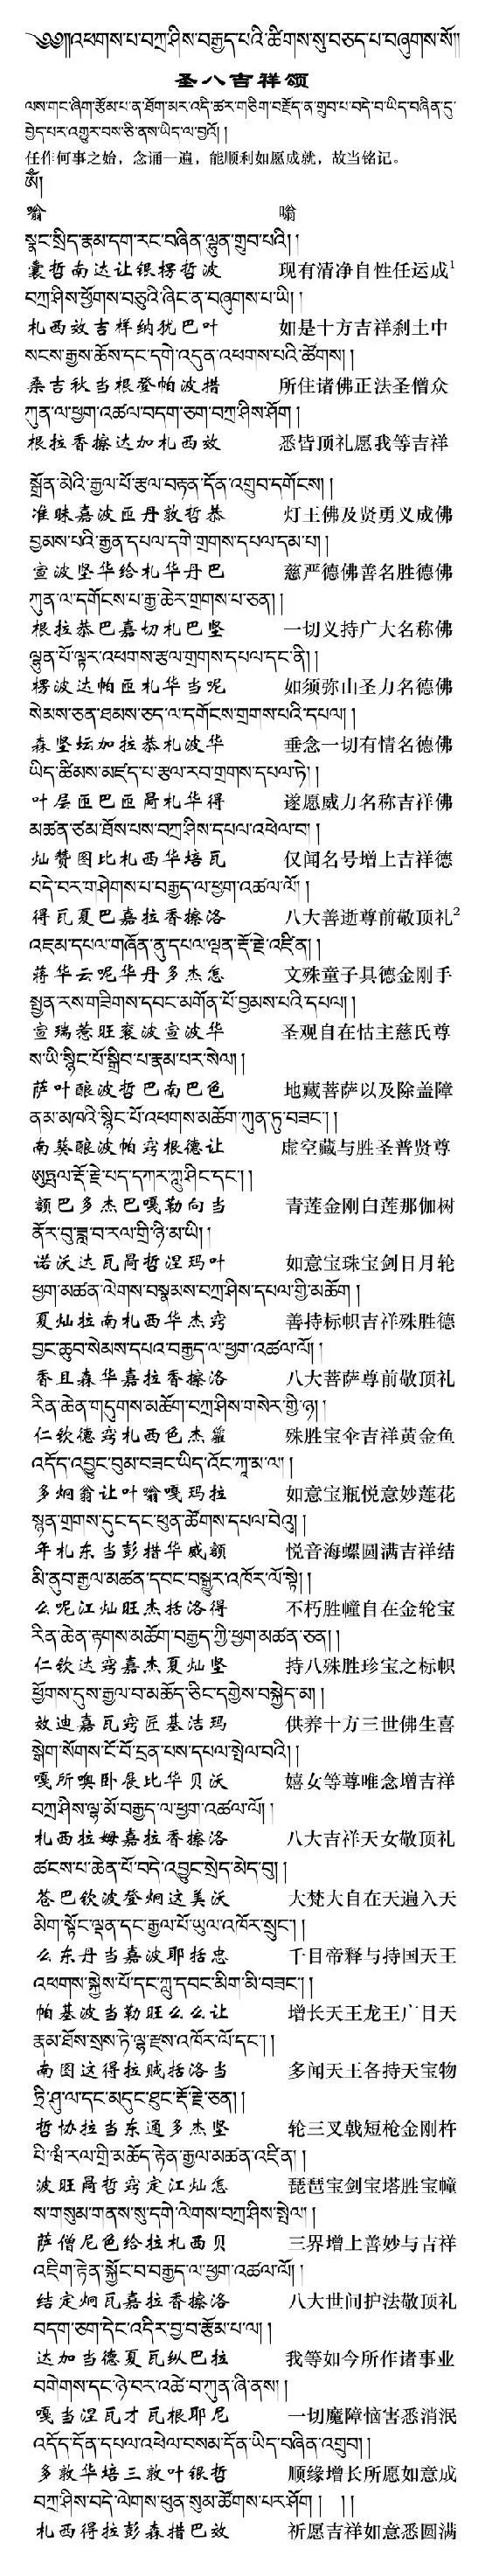 ༄༅།།འཕགས་པ་བཀྲ་ཤིས་བརྒྱད་པའི་ཚིགས་སུ་བཅད་པ་བཞུགས་སོ།།
圣八吉祥颂
ལས་གང་ཞིག་རྩོམ་པ་ན་ཐོག་མར་འདི་ཚར་གཅིག་བརྗོད་ན་གྲུབ་པ་བདེ་བ་ཡིད་བཞིན་དུ་
བྱེད་པར་འགྱུར་བས་ཅི་ནས་ཡིད་ལ་བྱའོ། །
任作何事之始，念诵一遍，能顺利如愿成就，故当铭记。
ཨོཾ།
嗡 嗡
སྣང་སྲིད་རྣམ་དག་རང་བཞིན་ལྷུན་གྲུབ་པའི། །
囊哲南达让银楞哲波 现有清净自性任运成1
བཀྲ་ཤིས་ཕྱོགས་བཅུའི་ཞིང་ན་བཞུགས་པ་ཡི། །
札西效吉样纳犹巴叶 如是十方吉祥刹土中
སངས་རྒྱས་ཆོས་དང་དགེ་འདུན་འཕགས་པའི་ཚོགས། །
桑吉秋当根登帕波措 所住诸佛正法圣僧众
ཀུན་ལ་ཕྱག་འཚལ་བདག་ཅག་བཀྲ་ཤིས་ཤོག །
根拉香擦达加札西效 悉皆顶礼愿我等吉祥
སྒྲོན་མེའི་རྒྱལ་པོ་རྩལ་བརྟན་དོན་འགྲུབ་དགོངས། །
准昧嘉波匝丹敦哲恭 灯王佛及贤勇义成佛
བྱམས་པའི་རྒྱན་དཔལ་དགེ་གྲགས་དཔལ་དམ་པ། །
宣波坚华给札华丹巴 慈严德佛善名胜德佛
ཀུན་ལ་དགོངས་པ་རྒྱ་ཆེར་གྲགས་པ་ཅན། །
根拉恭巴嘉切札巴坚 一切义持广大名称佛
ལྷུན་པོ་ལྟར་འཕགས་རྩལ་གྲགས་དཔལ་དང་ནི། །
楞波达帕匝札华当呢 如须弥山圣力名德佛
སེམས་ཅན་ཐམས་ཅད་ལ་དགོངས་གྲགས་པའི་དཔལ། །
森坚坛加拉恭札波华 垂念一切有情名德佛
ཡིད་ཚིམས་མཛད་པ་རྩལ་རབ་གྲགས་དཔལ་ཏེ། །
叶层匝巴匝局札华得 遂愿威力名称吉祥佛
མཚན་ཙམ་ཐོས་པས་བཀྲ་ཤིས་དཔལ་འཕེལ་བ། །
灿赞图比札西华培瓦 仅闻名号增上吉祥德
བདེ་བར་གཤེགས་པ་བརྒྱད་ལ་ཕྱག་འཚལ་ལོ། །
得瓦夏巴嘉拉香擦洛 八大善逝尊前敬顶礼2
འཇམ་དཔལ་གཞོན་ནུ་དཔལ་ལྡན་རྡོ་རྗེ་འཛིན། །
蒋华云呢华丹多杰怎 文殊童子具德金刚手
སྤྱན་རས་གཟིགས་དབང་མགོན་པོ་བྱམས་པའི་དཔལ། །
宣瑞惹旺衮波宣波华 圣观自在怙主慈氏尊
ས་ཡི་སྙིང་པོ་སྒྲིབ་པ་རྣམ་པར་སེལ། །
萨叶酿波哲巴南巴色 地藏菩萨以及除盖障
ནམ་མཁའི་སྙིང་པོ་འཕགས་མཆོག་ཀུན་ཏུ་བཟང་། །
南葵酿波帕窍根德让 虚空藏与胜圣普贤尊
ཨུཏྤལ་རྡོ་རྗེ་པད་དཀར་ཀླུ་ཤིང་དང་། །
额巴多杰巴嘎勒向当 青莲金刚白莲那伽树
ནོར་བུ་ཟླ་བ་རལ་གྲི་ཉི་མ་ཡི། །
诺沃达瓦局哲涅玛叶 如意宝珠宝剑日月轮
ཕྱག་མཚན་ལེགས་བསྣམས་བཀྲ་ཤིས་དཔལ་གྱི་མཆོག །
夏灿拉南札西华杰窍 善持标帜吉祥殊胜德
བྱང་ཆུབ་སེམས་དཔའ་བརྒྱད་ལ་ཕྱག་འཚལ་ལོ། །
香且森华嘉拉香擦洛 八大菩萨尊前敬顶礼
རིན་ཆེན་གདུགས་མཆོག་བཀྲ་ཤིས་གསེར་གྱི་ཉ། །
仁钦德窍札西色杰 殊胜宝伞吉祥黄金鱼
འདོད་འབྱུང་བུམ་བཟང་ཡིད་འོང་ཀཱ་མ་ལ། །
多炯翁让叶嗡嘎玛拉 如意宝瓶悦意妙莲花
སྙན་གྲགས་དུང་དང་ཕུན་ཚོགས་དཔལ་བེའུ། །
年札东当彭措华威额 悦音海螺圆满吉祥结
མི་ནུབ་རྒྱལ་མཚན་དབང་བསྒྱུར་འཁོར་ལོ་སྟེ། །
么呢江灿旺杰括洛得 不朽胜幢自在金轮宝
རིན་ཆེན་རྟགས་མཆོག་བརྒྱད་ཀྱི་ཕྱག་མཚན་ཅན། །
仁钦达窍嘉杰夏灿坚 持八殊胜珍宝之标帜
ཕྱོགས་དུས་རྒྱལ་བ་མཆོད་ཅིང་དགྱེས་བསྐྱེད་མ། །
效迪嘉瓦窍匠基洁玛 供养十方三世佛生喜
སྒེག་སོགས་ངོ་བོ་དྲན་པས་དཔལ་སྤེལ་བའི། །
嘎所噢卧展比华贝沃 嬉女等尊唯念增吉祥
བཀྲ་ཤིས་ལྷ་མོ་བརྒྱད་ལ་ཕྱག་འཚལ་ལོ། །
札西拉姆嘉拉香擦洛 八大吉祥天女敬顶礼
ཚངས་པ་ཆེན་པོ་བདེ་འབྱུང་སྲེད་མེད་བུ། །
苍巴钦波登炯这美沃 大梵大自在天遍入天
མིག་སྟོང་ལྡན་དང་རྒྱལ་པོ་ཡུལ་འཁོར་སྲུང་། །
么东丹当嘉波耶括忠 千目帝释与持国天王
འཕགས་སྐྱེས་པོ་དང་ཀླུ་དབང་མིག་མི་བཟང་། །
帕基波当勒旺么么让 增长天王龙王广目天
རྣམ་ཐོས་སྲས་ཏེ་ལྷ་རྫས་འཁོར་ལོ་དང་། །
南图这得拉贼括洛当 多闻天王各持天宝物
ཏྲི་ཤུ་ལ་དང་མདུང་ཐུང་རྡོ་རྗེ་ཅན། །
哲协拉当东通多杰坚 轮三叉戟短枪金刚杵
པི་ཝཾ་རལ་གྲི་མཆོད་རྟེན་རྒྱལ་མཚན་འཛིན། །
波旺局哲窍定江灿怎 琵琶宝剑宝塔胜宝幢
ས་གསུམ་གནས་སུ་དགེ་ལེགས་བཀྲ་ཤིས་སྤེལ། །
萨僧尼色给拉札西贝 三界增上善妙与吉祥
འཇིག་རྟེན་སྐྱོང་བ་བརྒྱད་ལ་ཕྱག་འཚལ་ལོ། །
结定炯瓦嘉拉香擦洛 八大世间护法敬顶礼
བདག་ཅག་དེང་འདིར་བྱ་བ་རྩོམ་པ་ལ། །
达加当德夏瓦纵巴拉 我等如今所作诸事业
བགེགས་དང་ཉེ་བར་འཚེ་བ་ཀུན་ཞི་ནས། །
嘎当涅瓦才瓦根耶尼 一切魔障恼害悉消泯
འདོད་དོན་དཔལ་འཕེལ་བསམ་དོན་ཡིད་བཞིན་འགྲུབ། །
多敦华培三敦叶银哲 顺缘增长所愿如意成
བཀྲ་ཤིས་བདེ་ལེགས་ཕུན་སུམ་ཚོགས་པར་ཤོག། །།
札西得拉彭森措巴效 祈愿吉祥如意悉圆满